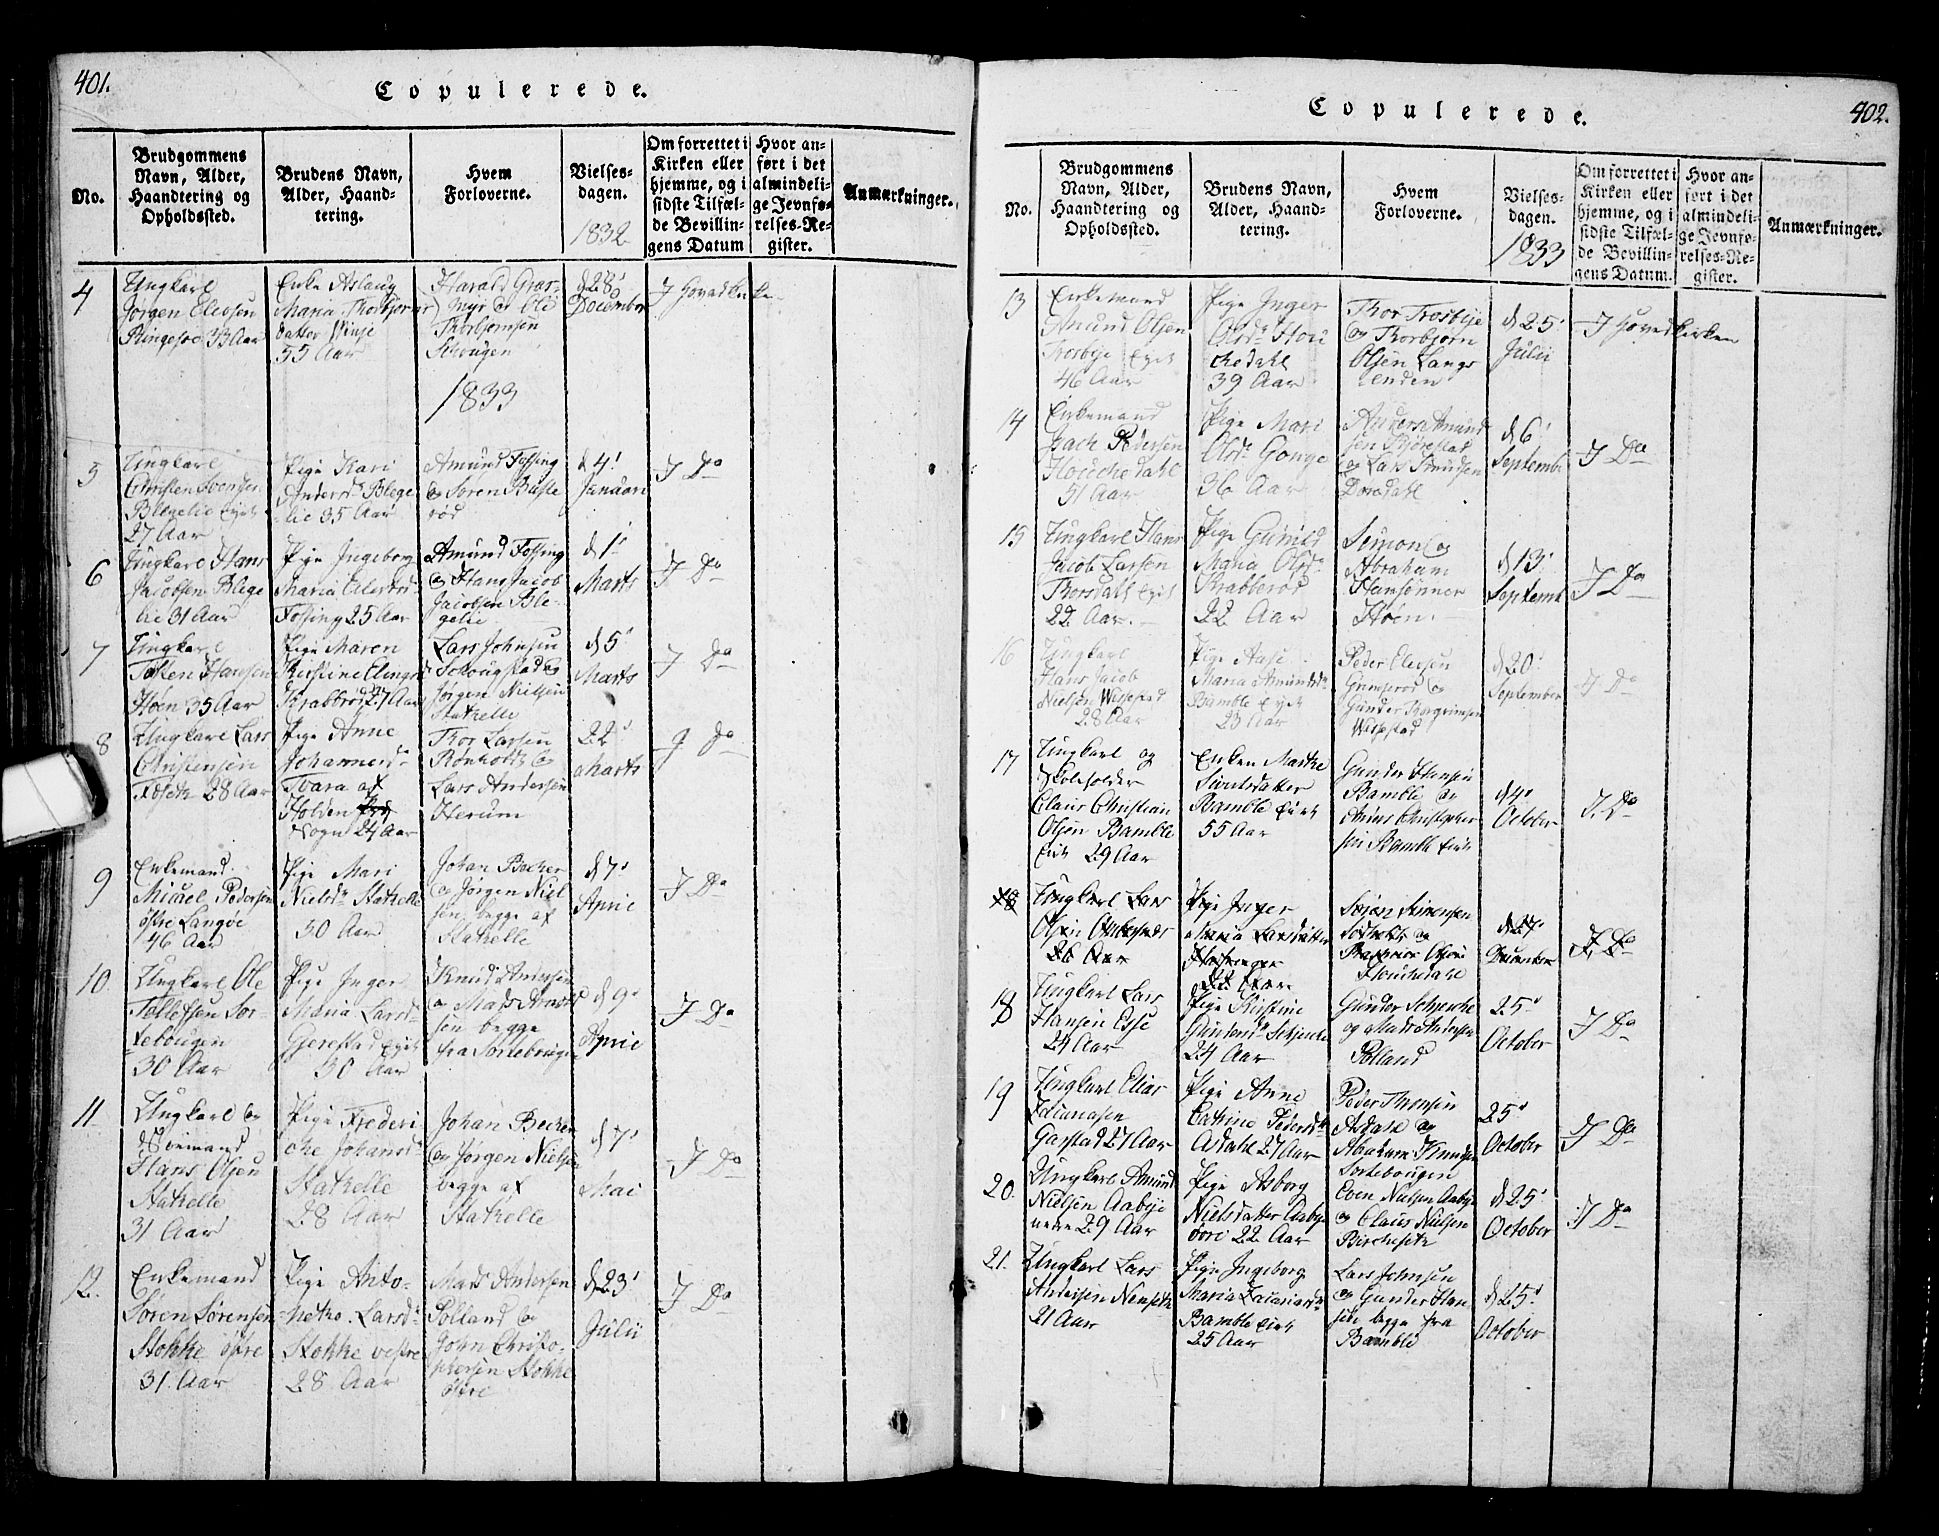 401.
Copulerede.
No.
Brudgommens
Navn, Alder,
Haandtering og
Opholdssted.
Brudens Navn,
Alder, Haand-
tering.
Hvem
Forloverne.
Vielses-
dagen.
1832
Om forrettet i
Kirken eller
hjemme, og i
sidste Tilfæl-
de Bevillin-
gens Datum
Hvor an-
ført i det
almindeli-
ge Jevnfø-
relses-Re-
gister.
Anmærkninger.
4
Ungkarl
Jørgen Elessen
33 Aar
Enke Aslaug
Maria Thorbjørns
datter Vinje
55 Aar
Harald Gras-
myr og Ole
Thorbjørnsen
d 28'
December
I Hovedkirke
1833
5
Ungkarl
Christen
Blegelie
27 Aar
Pige Kari
Andersd. Blege
lie 35 Aar
Amund Fossing
og Søren Buste
rød
d 4'
Januari
I Do
6
Ungkarl Hans
Jacobsen Blege
lie 31 Aar
Pige Ingeborg
Maria
Fossing 25 Aar
Amund Fossing
og Hans Jacob
Jacobsen Ble-
gelie
d 1'
Marts
I Do
7
Ungkarl
Hansen
Høen 35 Aar
Pige Maren
Kirstine
Krabberød 27 Aar
Lars Johnsen
og
Jørgen Nielsen
Stathelle
d 5'
Marts
I Do
8
Ungkarl Lars
Christensen
28 Aar
Pige Anne
Johannesd.
Tvara af
Holden
Sogn 24 Aar
Thor Larsen
Rønholdt og
Lars Andersen
Herum
22'
Marts
I Do
9
Enkemand
Micael Pedersen
østre Langøe
46 Aar
Pige Mari
Nielsdr Stathelle
30 Aar
Johan Becker
og Jørgen Niel
sen begge af
Stathelle
d 7'
Aprie
I Do
10.
Ungkarl Ole
Tollefsen Sor-
tebougen
30 Aar
Pige Inger
Maria Larsd
Gjerestad Eyet
30 Aar
Knud Andersen
og Mads
sen begge
fra Sortebougen
d 9'
Aprie
I Do
11.
Ungkarl og
Søemand
Hans Olsen
Stathelle
31 Aar
Pige Frederi
che Johansd
Stathelle
28 Aar
Johan Becker
og Jørgen Nielsen
begge af
Stathelle
d 7'
Mai
I Do
12.
Enkemand
Søren Sørensen
Stokke østre
31 Aar
Pige Anto-
nethe Larsd
Stokke vestre
28 Aar
Mads Andersen
Solland og
John Christo-
phersen Stokke
østre
d 23'
Julii
I Do
402.
Copulerede.
No.
Brudgommens
Navn, Alder,
Haandtering og
Opholdssted.
Brudens Navn,
Alder, Haand-
tering.
Hvem
Forloverne.
Vielses-
dagen.
1833
Om forrettet i
Kirken eller
hjemme, og i
sidste Tilfæl-
de Bevillin-
gens Datum.
Hvor an-
ført i det
almindeli-
ge Jevnfø-
relses-Re-
gister.
Anmærkninger.
13
Enkemand
Amund Olsen
Trosbye Eyet
46 Aar
Pige Inger
Olsdr Hou
chedahl
39 Aar
Thor Trosbye
og Thorbjørn
Olsen Langs
enden
d 25'
Julii
I Hovedkirken
14
Enkemand
Isach Pedersen
Houchedahl
51 Aar
Pige Mari
Olsdr Gonge
36 Aar
Anders Amund
sen
og Lars Knudsen
Dorsdahl
d 6'
Septembe
I Do
15
Ungkarl Hans
Jacob Larsen
Thorsdahl Eyet
22 Aar.
Pige Gunild
Maria Olsdr
Krabberød
22 Aar
Simon og
Abraham
Hansønner
Høen
d 13'
Septemb
I Do
16
Ungkarl
Hans Jacob
Nielsen
28 Aar
Pige Aase
Maria Amundsdr
Bamble Eyet
23 Aar
Peder Elessen
Grimerød og
Gunder Thorgrimsen
d 20'
September
I Do
17
Ungkarl og
Skoleholder
Claus Christian
Olsen Bamble
Eiet 29 Aar
Enken Marthe
Sivertsdatter
Bamble Eiet
55 Aar
Gunder Hansen
Bamble og
Christopher
sen Bamble Eiet
d 4'
October
I. Do
18
Ungkarl Lars
Olsen
26 Aar
Pige Inger
Maria Larsdatter
22 Aar
Simonsen
og
Olsen
Houchedahl
d 27'
I Do
18
Ungkarl Lars
Hansen Esse
24 Aar
Pige Kirstine
Gundersdr Schjerke
24 Aar
Gunder Schjerche
og Mads Andersen
Rolland
25'
October
I Do
19
Ungkarl Elias
Gasstad 27 Aar
Pige Anne
Cathrine Pedersdr
Asdahl 27 Aar
Peder Thomsen
Asdahl og
Abraham Knudsen
Sortebougen
25'
October
I Do
20.
Ungkarl Amund
Nielsen Aabye
nedre 29 Aar
Pige Asborg
Nielsdatter Aabye
øvre 22 Aar
Even Nielsen Aabye
og Claus Nielsen
Berchesets
d 25'
October
I Do
21.
Ungkarl Lars
Andersen Nenseth
21 Aar
Pige Ingeborg
Maria Zachariasdr
Bamble Eiet
25 Aar
Lars Johnsen
og Gunder Han
sen begge fra
Bamble
d 25'
October